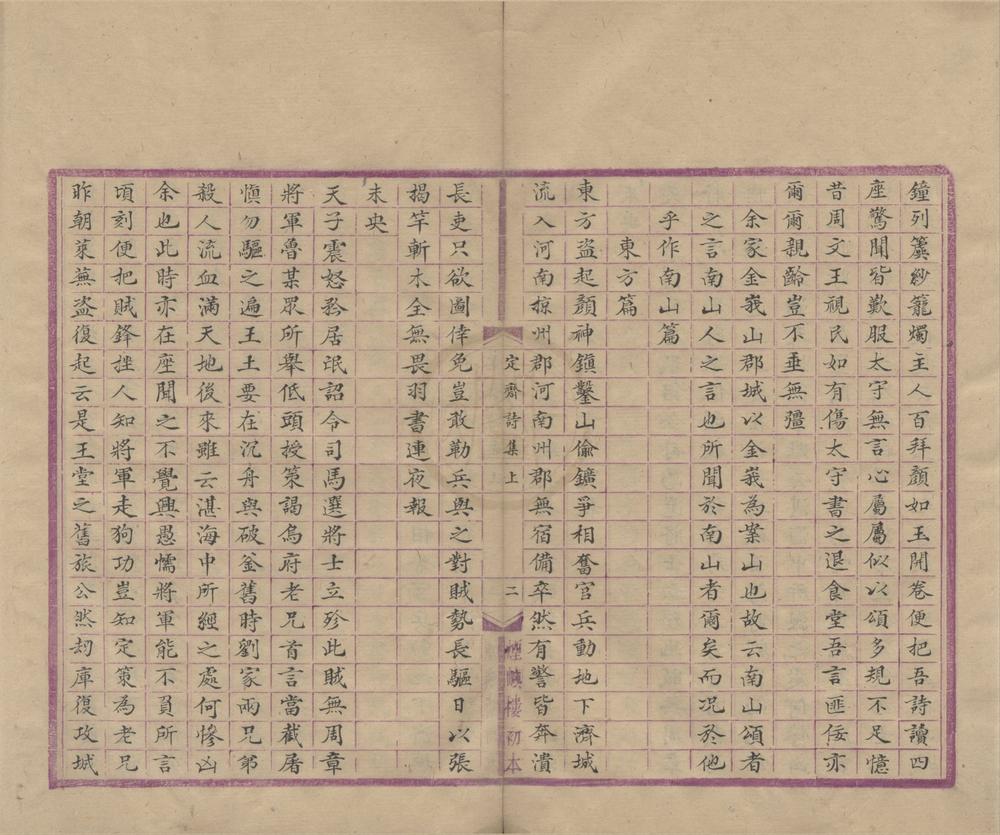 鐘列簴紗籠燭主人百拜顏如玉開卷便把吾詩讀四
座驚聞皆歎服太守無言心屬屬似以頌多規不足憶
昔周文王視民如有傷太守書之退食堂吾言匪佞亦
爾爾親齡豈不垂無彊
余家金峩山郡城以金峩為案山也故云南山頌者
之言南山人之言也所聞於南山者爾矣而况於他
乎作南山篇
東方篇
東方盜起顏神鎮鑿山偷鑛爭相奮官兵動地下濟城
流入河南掠州郡河南州郡無宿備卒然有警皆奔潰
定齋詩集上
二
煙嶼樓初本
長吏只欲圖倖免豈敢勒兵與之對賊勢長驅日以張
揭竿斬木全無畏羽書連夜報
未央
天子震怒矜居氓詔令司馬選將士立殄此賊無周章
將軍魯某眾所舉低頭授策謁烏府老兄首言當截屠
慎勿驅之遍王土要在沉舟與破釜舊時劉家兩兄弟
殺人流血滿天地後來雖云湛海中所經之處何慘凶
余也此時亦在座聞之不覺興愚懦將軍能不負所言
頃刻便把賊鋒挫人知將軍走狗功豈知定策為老兄
昨朝萊蕪盜復起云是王堂之舊旅公然刧庫復攻城